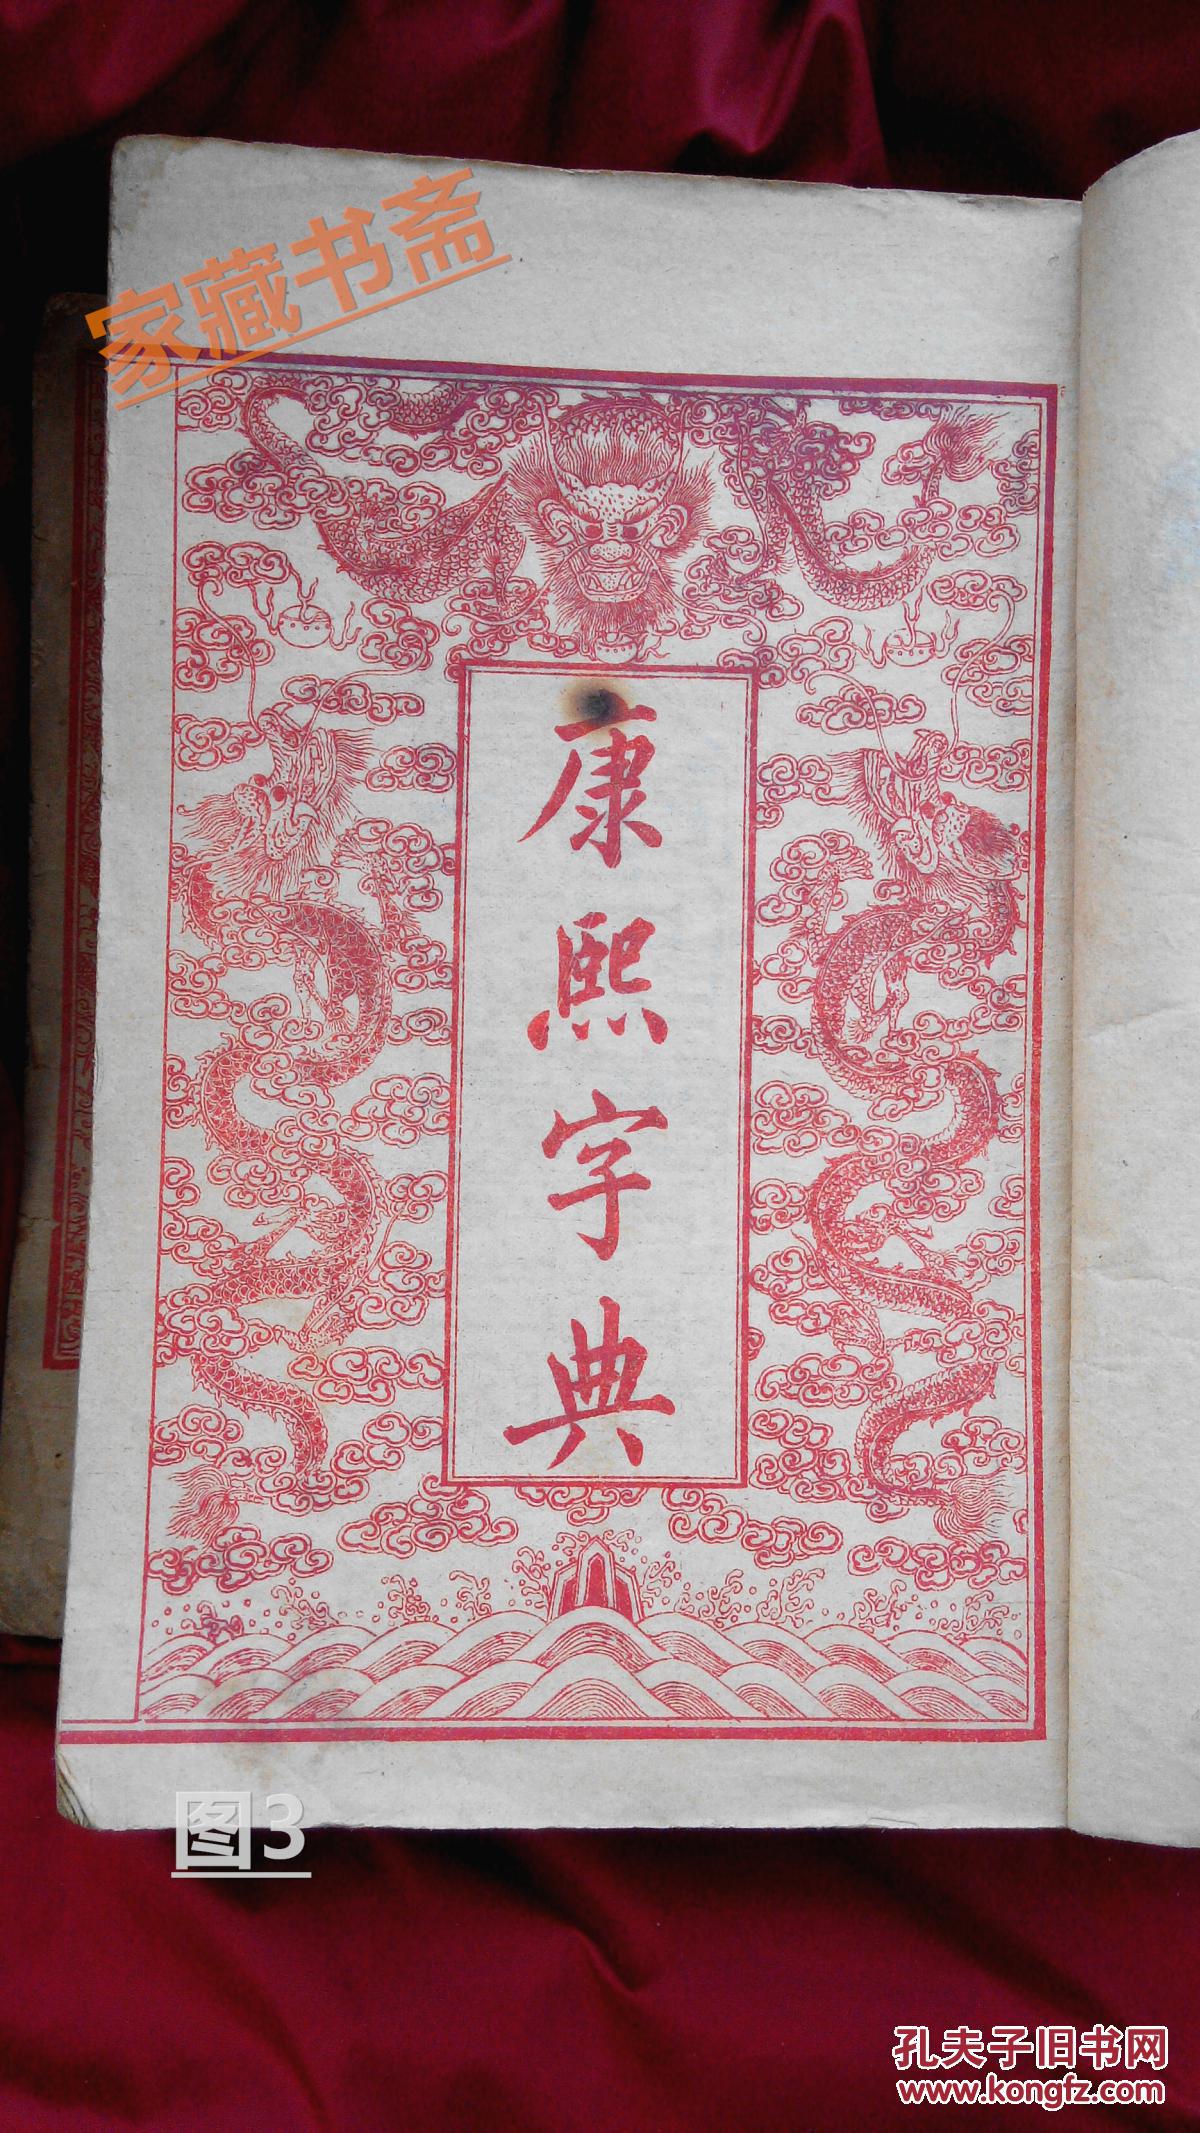 家藏书斋
康熙字典
图3
孔夫子旧书网
www.kongfz.com